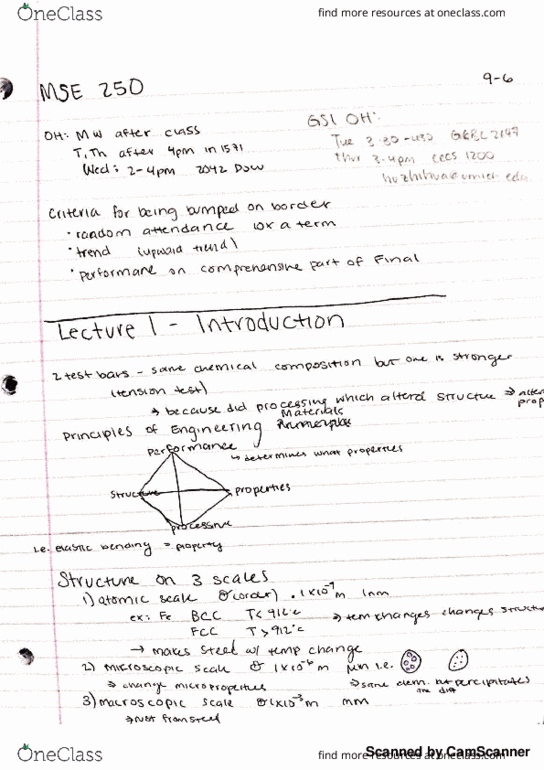 OneClass find more resources at oneclass.com
9-6
MSE 250
OH: MW after class
T, Th after 4pm in 1571
Wed: 2-4pm 2042 Dow
GSI OH:
Tue
Thur 3-4pm EECS 1200
Criteria for being bumped on border
· random attendance 10x a term
· trend (upward trend)
· performane on comprehensive part of Final
Lecture 1 - Introduction
2 test bars - same chemical composition but one is stronger
(tension test)
→ because did processing which alterd structure ⇒
Principles of Engineering Materials
performance
↳ determines what properties
structure
properties
processing
i.e. elastic bending = property
Structure on 3 scales
1) atomic scale O(order) .1x10⁻⁹m 1nm
ex: Fe BCC T<912°C ⇒ tem changes changes
FCC T>912°C
→ makes steel w/ temp change
2) microscopic scale O 1x10⁻⁶m μm i.e.
⇒ change microproperties
⇒ same elem. but percipitates
are diff
3) macroscopic scale O 1x10⁻³m mm
⇒ rust from steel
OneClass find more resources at oneclass.com
Scanned by CamScanner